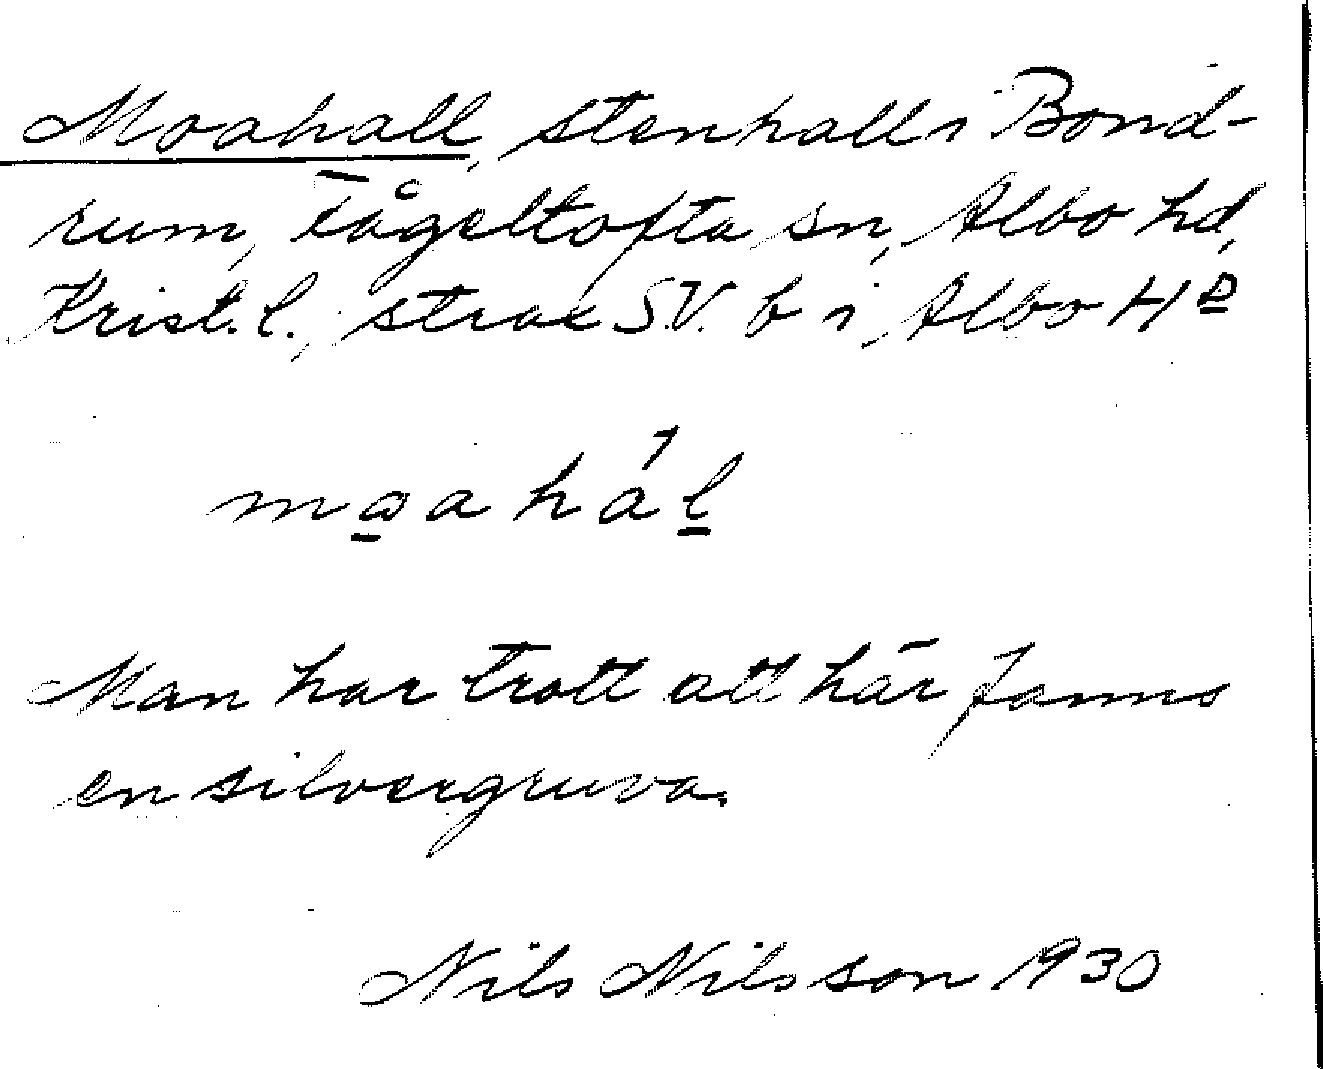 Moahall, stenhall i Bond-
rum, Tågeltofta sn, Albo hd,
Krist. l., strax S.V. b i Albo Hd
maahál
Man har trott att här fanns
en silvergruva.
Nils Nilsson 1930